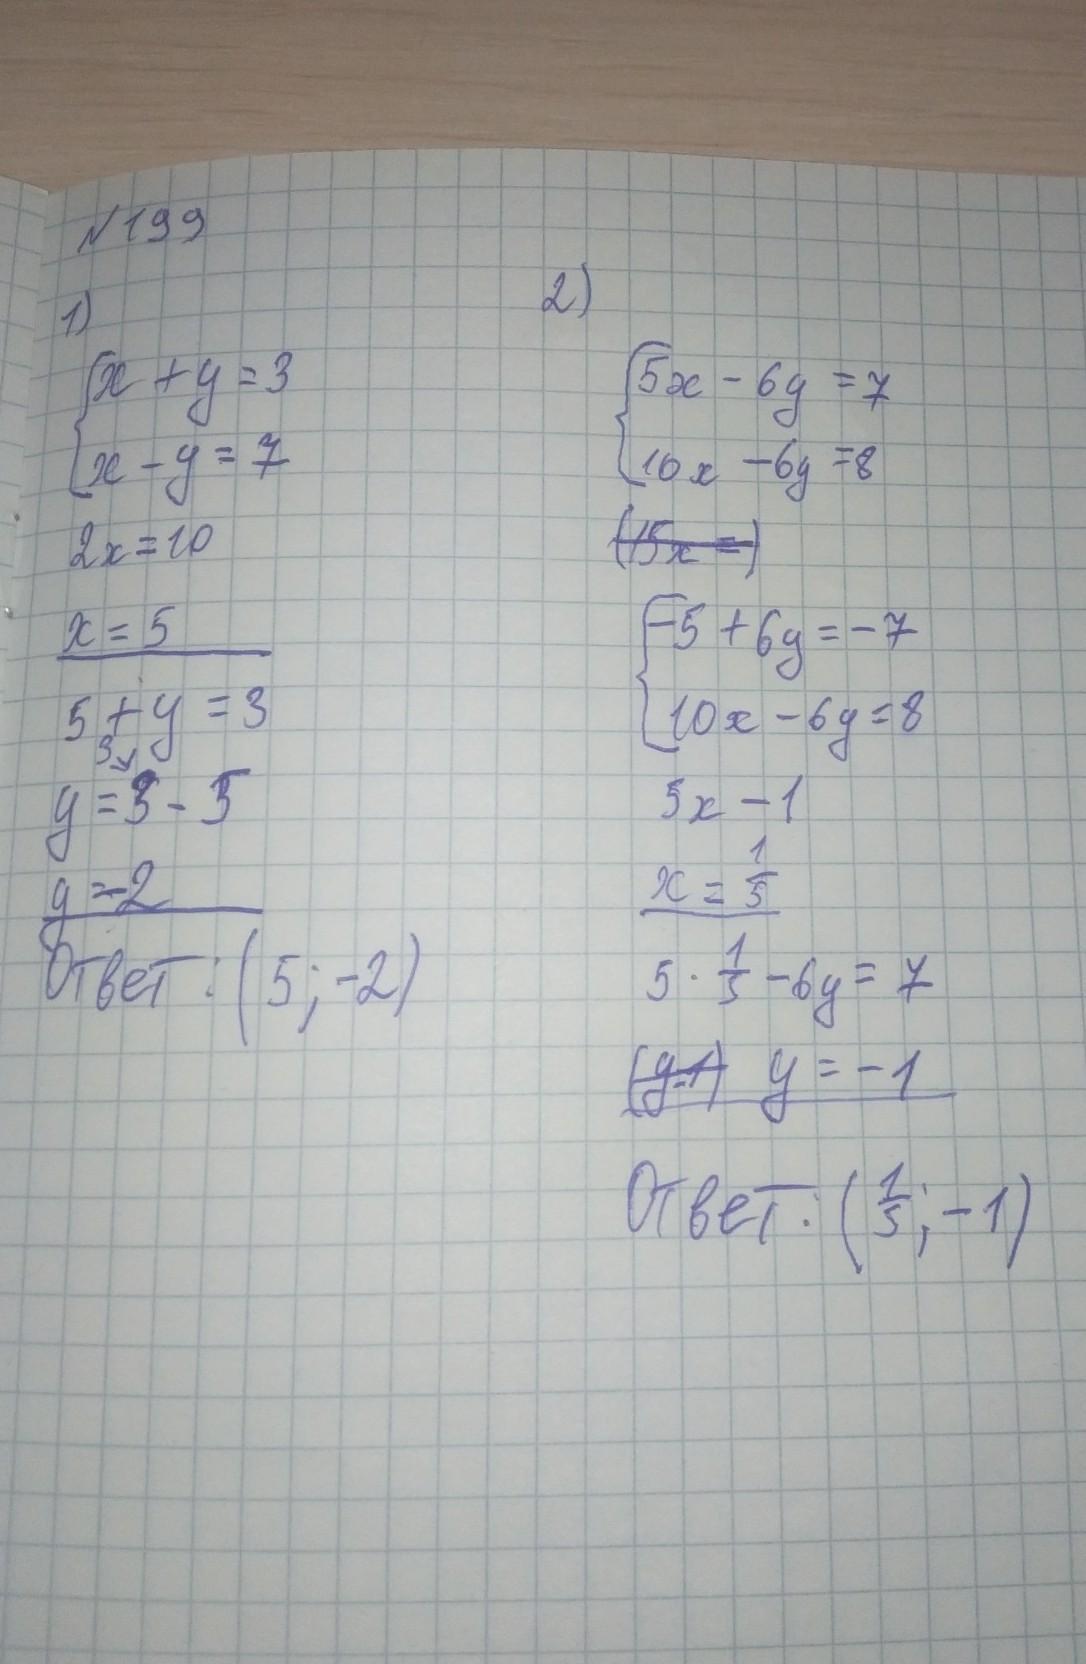 №199
1)
x + y = 3
x - y = 7
2x = 10
x = 5
5 + y = 3
3
y = 3 - 5
y = -2
Ответ: (5; -2)
2)
5x - 6y = 7
10x - 6y = 8
(15x = )
-5 + 6y = -7
10x - 6y = 8
5x - 1
x = 1/5
5 · 1/5 - 6y = 7
(y-1) y = -1
Ответ: (1/5; -1)